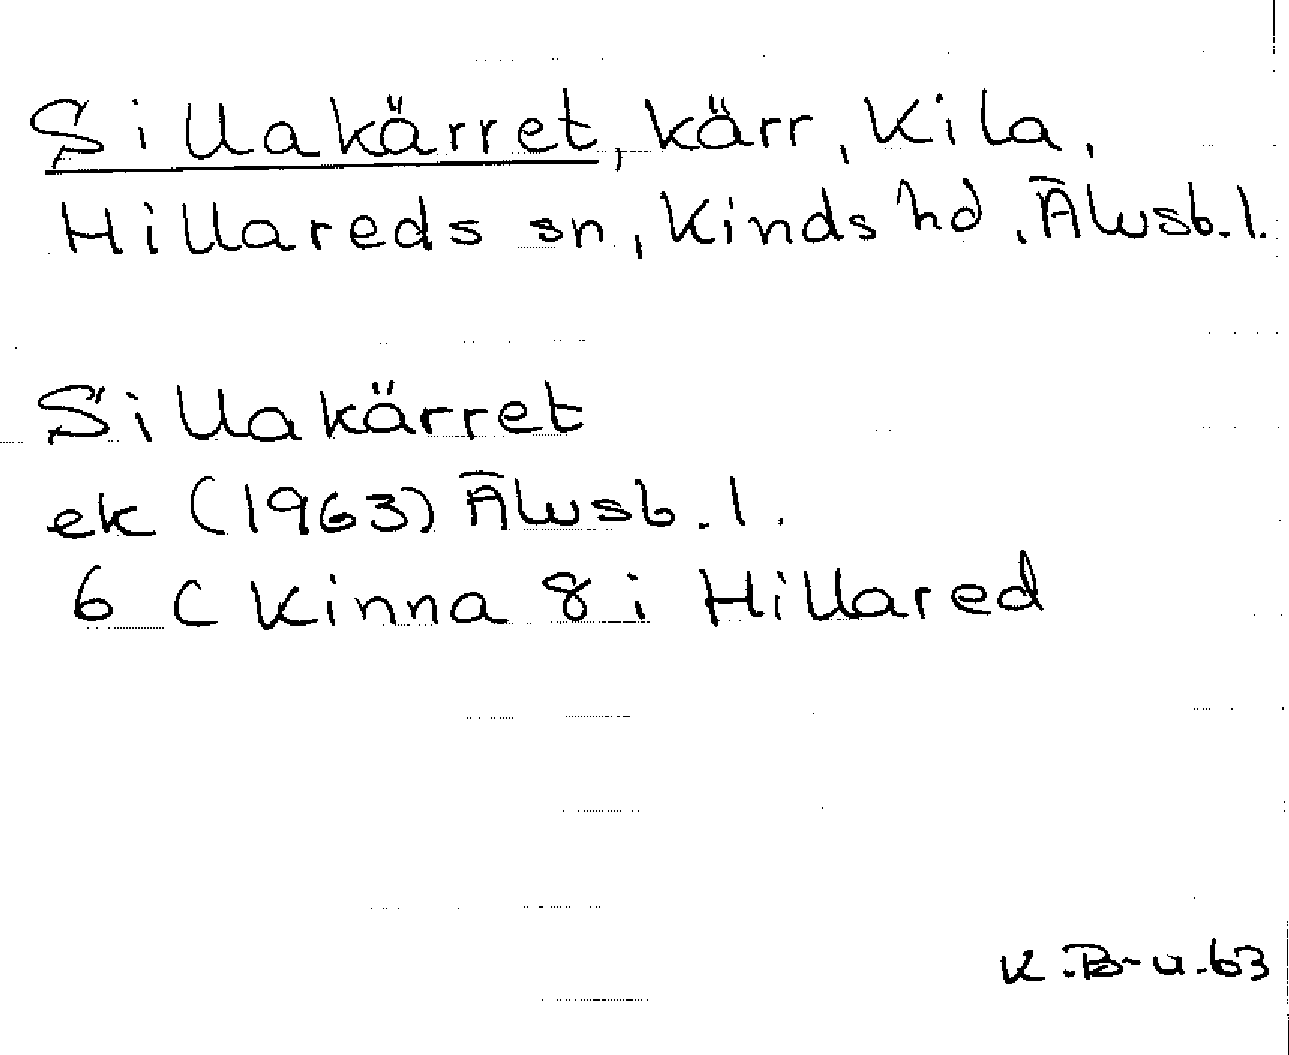 Sillakärret, kärr, Kila,
Hillareds sn, Kinds hd, Älvsb. l.
Sillakärret
ek (1963) Älvsb. l.
6 C Kinna 8 i Hillared
K.B-u.63